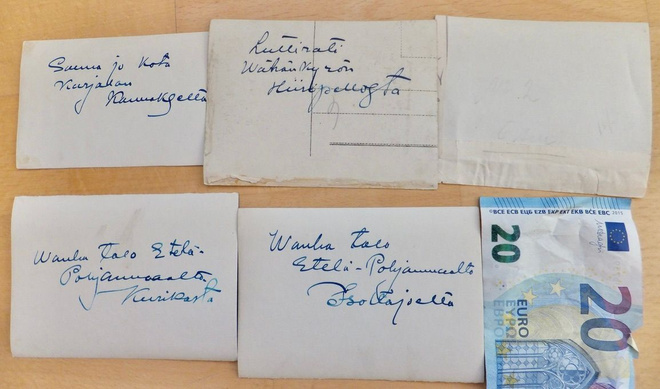 Sauna ja Kota
Karjalan
Kannakselta
Luttirati
Wähänkyrön
Hiiripellosta
Wanha talo Etelä-
Pohjanmaalta
Kurikasta
Wanha talo
Etelä-Pohjanmaalta
Isojoelta
©BCE ECB ЕЦБ EZB EKP EKT EKB BĊE EBC 2015
20
20
EURO
ΕΥΡΩ
ЕВРО